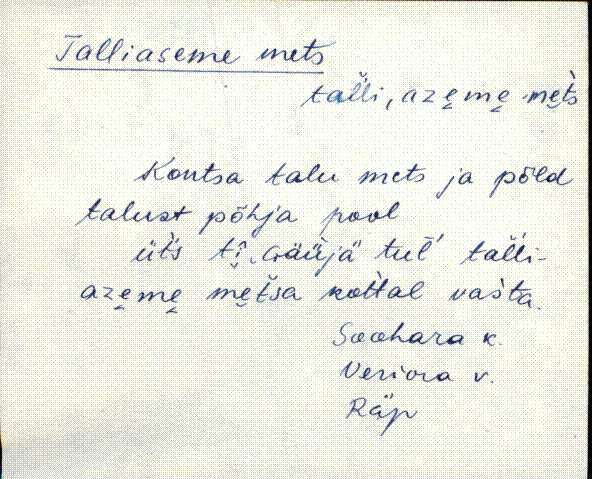 Talliaseme mets
tal̆l̆i, aze̬me̬ me̬t̀s
Kontsa talu mets ja põld
talust põhja pool
üt̀s tî käüjä tuĺ tal̆l̆i-
aze̬me̬ me̬t̆sa kottal vaśta.
Soohara k.
Veriora v.
Räp